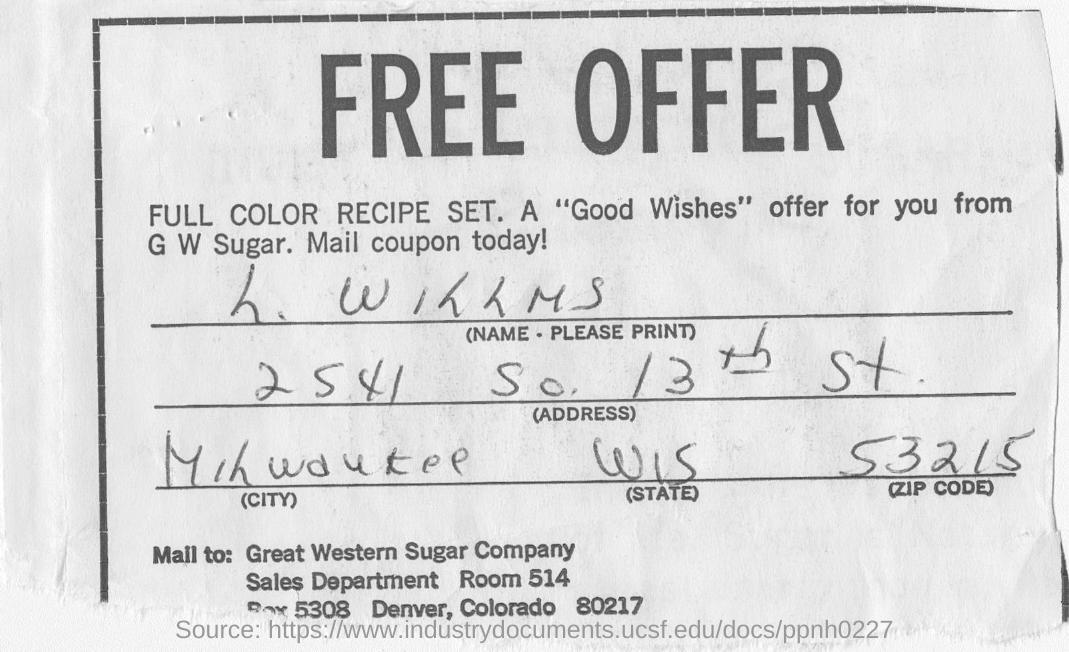 FREE OFFER
FULL COLOR RECIPE SET. A “Good Wishes” offer for you from
G W Sugar. Mail coupon today!
L. WILLMS
(NAME - PLEASE PRINT)
2541 So. 13th St.
(ADDRESS)
Milwaukee WIS 53215
(CITY) (STATE) (ZIP CODE)
Mail to: Great Western Sugar Company
Sales Department Room 514
Box 5308 Denver, Colorado 80217
Source: https://www.industrydocuments.ucsf.edu/docs/ppnh0227